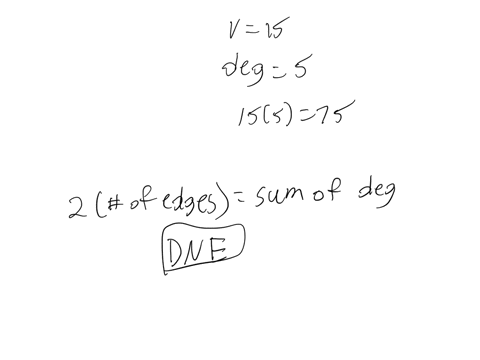 v = 15
deg = 5
15(5) = 75
2 (# of edges) = sum of deg
DNE